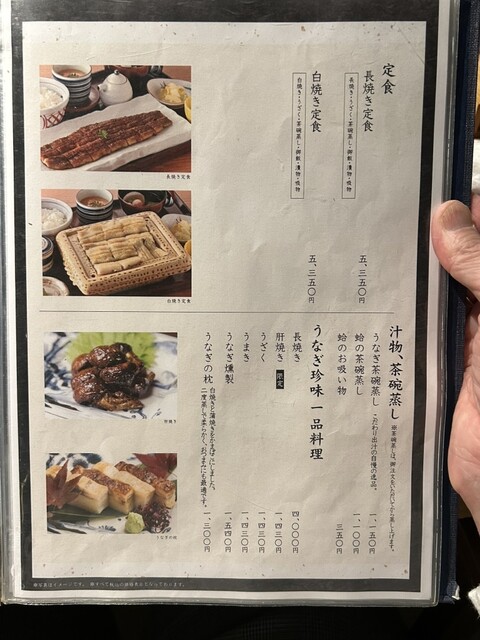 定食
長焼き定食
長焼き・うざく・茶碗蒸し・御飯・漬物・吸物
五、三五〇円
白焼き定食
白焼き・うざく・茶碗蒸し・御飯・漬物・吸物
五、三五〇円
長焼き定食
白焼き定食
汁物、茶碗蒸し
※茶碗蒸しは、御注文をいただいてから蒸し上げます。
うなぎ茶碗蒸し こだわり出汁の自慢の逸品。 一、一五〇円
蛤の茶碗蒸し 一、一〇〇円
蛤のお吸い物 三五〇円
うなぎ珍味 一品料理
長焼き 四、〇〇〇円
肝焼き 限定 一、四三〇円
うざく 一、四三〇円
うまき 一、四三〇円
うなぎ燻製 一、五四〇円
うなぎの枕 一、三〇〇円
白焼きと蒲焼きをかまぼこにしました。
二度蒸しで柔らかく、おつまみにも最適です。
肝焼き
うなぎの枕
※写真はイメージです。 ※すべて税込の価格表示となっております。